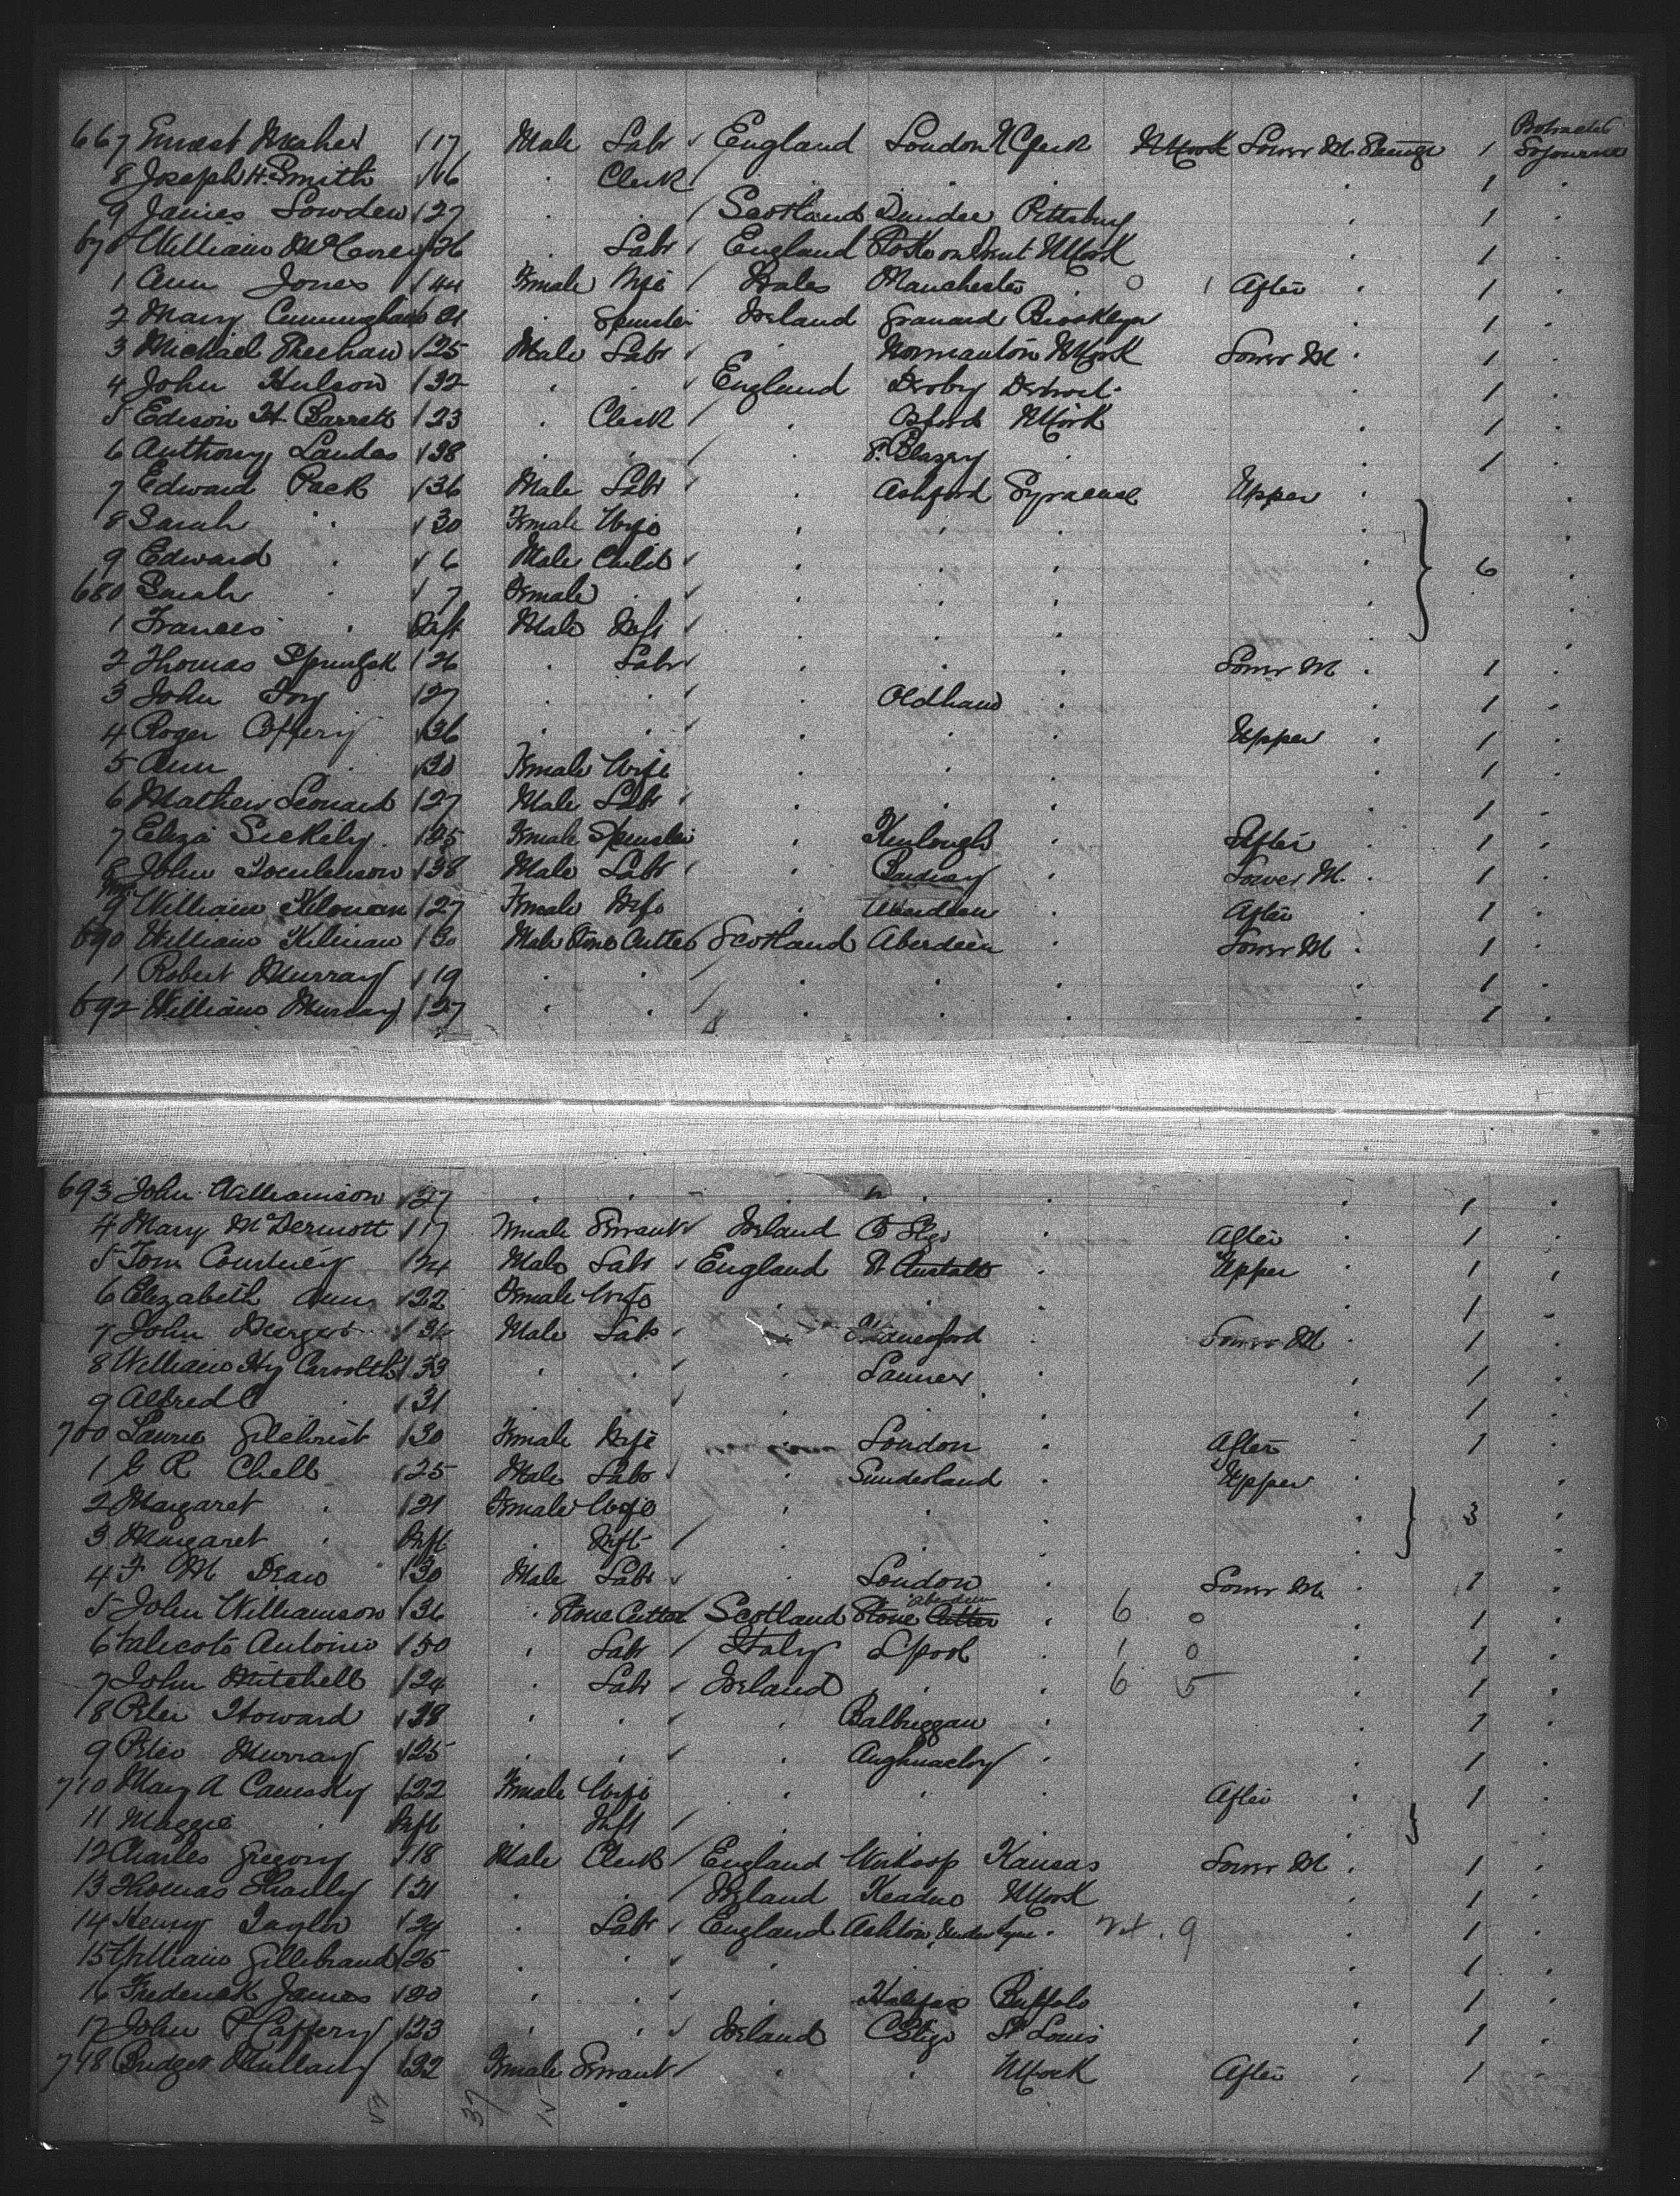 667 Ernest Meaher 17 Male Labr England London N York Lower M Steerage 1 Protracted Sojourn
8 Joseph H. Smith 16 . Clerk . . . . 1 .
9 James Lowden 27 . . Scotland Dundee Pittsburg . 1 .
670 William 26 . Labr England Stoke on Trent N York . 1 .
1 Ann Jones 44 Female Wife Wales Manchester . 0 1 After . 1 .
2 Mary Cunningham 21 . Spinster Ireland Granard Brooklyn . 1 .
3 Michael 25 Male Labr . Normanton N York Lower M . 1 .
4 John Hulson 32 . . England Derby Detroit . 1 .
5 Edison H Barrett 23 . Clerk . Oxford N York . 1 .
6 Anthony Landes 38 . . . St. Blazey . . 1 .
7 Edward Pack 36 Male Labr . Ashford Syracuse Upper . .
8 Sarah . 30 Female Wife . . . . .
9 Edward . 6 Male Child . . . . 6 .
680 Sarah . 7 Female . . . . . .
1 Frances . Inft Male Inft . . . . .
2 Thomas 26 . Labr . . . Lower M . 1 .
3 John Foy 27 . . . Oldham . . 1 .
4 Roger Caffery 36 . . . . . Upper . 1 .
5 Ann . 30 Female Wife . . . . 1 .
6 Mathew Leonard 27 Male Labr . . . . 1 .
7 Eliza 25 Female Spinster . Kinlough . After . 1 .
8 John Tomlinson 38 Male Labr . . Lower M . 1 .
Mrs 9 William Kilman 27 Female Wife . Aberdeen . After . 1 .
690 William Kilman 30 Male Stone Cutter Scotland Aberdeen . Lower M . 1 .
1 Robert Murray 19 . . . . . . 1 .
692 William Murray 27 . . . . . . 1 .
693 John Williamson 27 . . . . . . 1 .
4 Mary McDermott 17 Female Servant Ireland Co Sligo . After . 1 .
5 Tom Courtney 24 Male Labr England St Austalls . Upper . 1 .
6 Elizabeth Ann 22 Female Wife . . . . 1 .
7 John 34 Male Labr . . Lower M . 1 .
8 William Hy Carvolth 33 . . . Lanner . . 1 .
9 Alfred C . 31 . . . . . . 1 .
700 Laura Gilchrist 30 Female Wife . London . After . 1 .
1 G R Chell 25 Male Labr . Sunderland . Upper . .
2 Margaret . 21 Female Wife . . . . 3 .
3 Margaret . Inft . Inft . . . . .
4 F M Dean 30 Male Labr . London . Lower M . 1 .
5 John Williamson 36 . Stone Cutter Scotland Stone Cutter Aberdeen . 6 0 . 1 .
6 Antonio 50 . Labr Italy Lpool . 1 0 . 1 .
7 John Mitchell 24 . Labr Ireland . . 6 5 . 1 .
8 Peter Howard 28 . . . Balbriggan . . 1 .
9 Peter Murray 25 . . . Aughnacloy . . 1 .
710 Mary A 22 Female Wife . . . After . 1 .
11 Maggie . Inft . Inft . . . . .
12 Charles Gregory 18 Male Clerk England Worksop Kansas Lower M . 1 .
13 Thomas Shanly 21 . . Ireland Keadue N York . 1 .
14 Henry Taylor 24 . Labr England Ashton Under Lyne . 9 . 1 .
15 William Gillibrand 25 . . . . . . 1 .
16 Frederick James 20 . . . Halifax Buffalo . 1 .
17 John P Caffery 23 . . Ireland Co Sligo St Louis . 1 .
718 Bridget Mullany 22 Female Servant . . N York After . 1 .
37